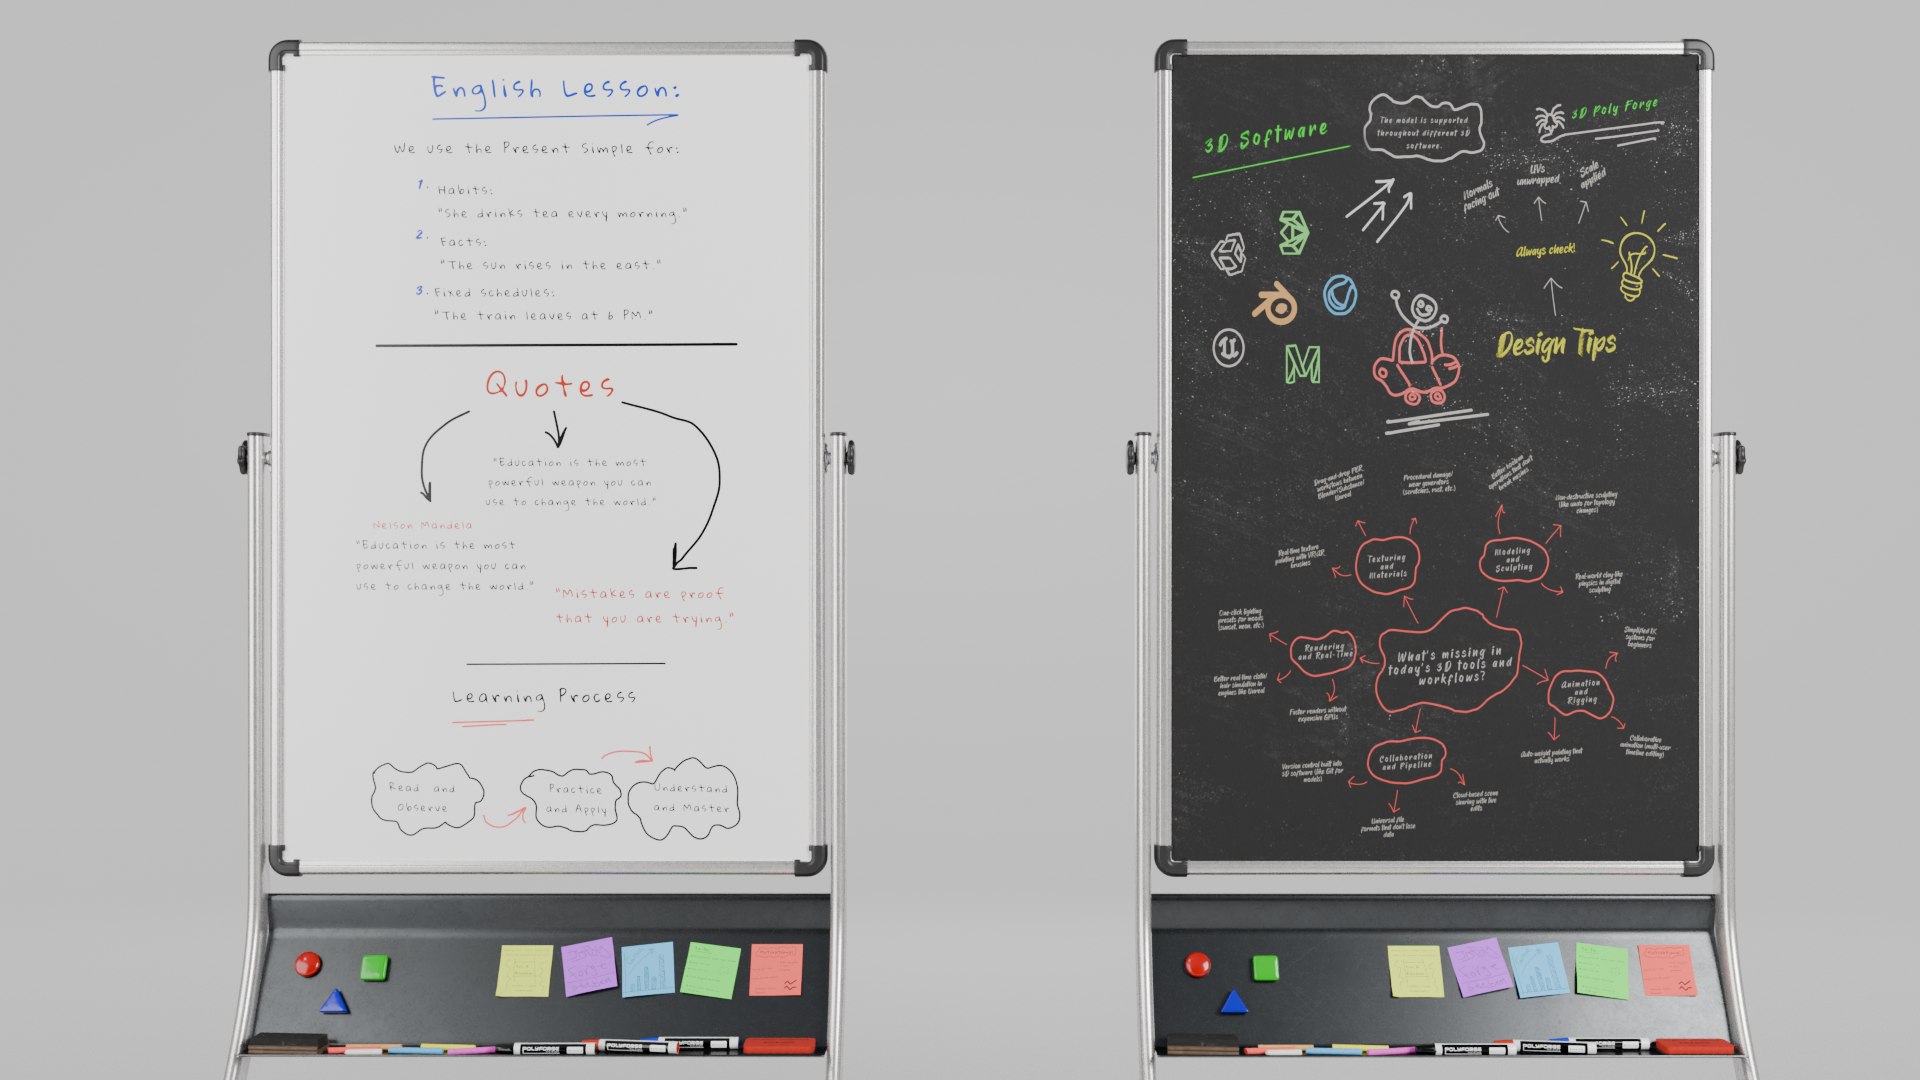 English Lesson:
We use the Present Simple for:
1. Habits:
"She drinks tea every morning."
2. Facts:
"The sun rises in the east."
3. Fixed schedules:
"The train leaves at 6 PM."
Quotes
"Education is the most
powerful weapon you can
use to change the world."
Nelson Mandela
"Education is the most
powerful weapon you can
use to change the world."
"Mistakes are proof
that you are trying."
Learning Process
Read and
Observe
Practice
and Apply
Understand
and Master
POLYFORGE
POLYFORGE
POLYFORGE
3D Software
The model is supported
throughout different 3D
software.
3D Poly Forge
Normals
facing out
UVs
unwrapped
Scale
applied
Always check!
Design Tips
U
M
Drag-and-drop PBR
workflows between
Blender/Substance/
Unreal
Procedural damage/
wear generators
(scratches, rust, etc.)
Better boolean
operations that don't
break meshes
Non-destructive sculpting
(like undo for topology
changes)
Real-time texture
painting with VR/AR
brushes
Texturing
and
Materials
Modeling
and
Sculpting
Real-world clay-like
physics in digital
sculpting
One-click lighting
presets for moods
(sunset, neon, etc.)
Rendering
and Real-Time
What's missing in
today's 3D tools and
workflows?
Simplified IK
systems for
beginners
Better real-time cloth/
hair simulation in
engines like Unreal
Animation
and
Rigging
Faster renders without
expensive GPUs
Auto-weight painting that
actually works
Collaborative
animation (multi-user
timeline editing)
Version control built into
3D software (like Git for
models)
Collaboration
and Pipeline
Cloud-based scene
sharing with live
edits
Universal file
formats that don't lose
data
POLYFORGE
POLYFORGE
POLYFORGE